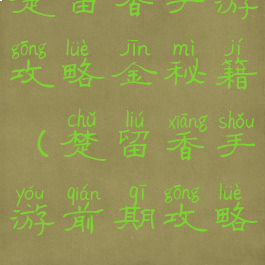 楚留香手游
gōng lüè jīn mì jí
攻略金秘籍
chǔ liú xiāng shǒu
（楚留香手
yóu qián qī gōng lüè
游前期攻略